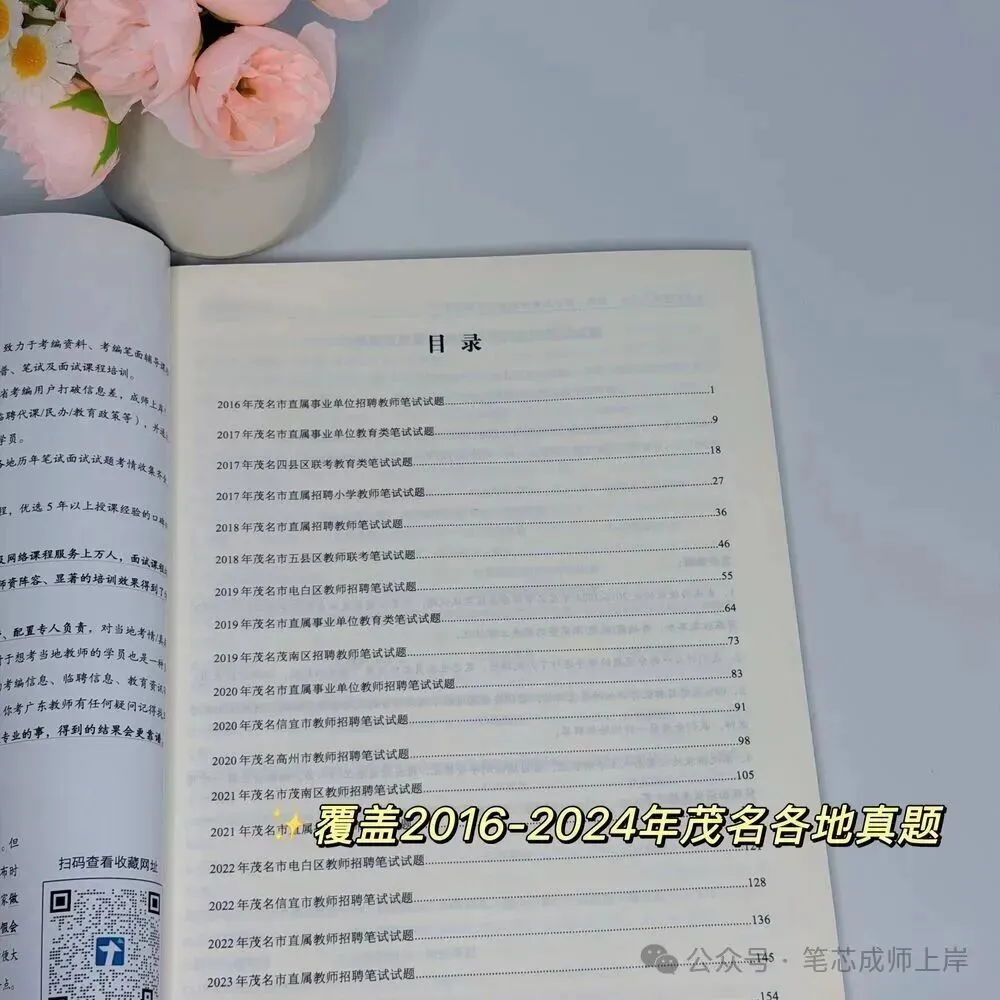 致力于考编资料、考编笔面辅导课
普、笔试及面试课程培训。
省考编用户打破信息差，成师上岸
临聘代课/民办/教育政策等），并
学员。
各地历年笔试面试试题考情收集齐
程，优选5年以上授课经验的口
及网络课程服务上万人，面试课程
师资阵容、显著的培训效果得到了
、配置专人负责，对当地考情/真
对于想考当地教师的学员也是一种
的考编信息、临聘信息、教育资讯
你考广东教师有任何疑问记得找
专业的事，得到的结果会更靠谱
。但
布时
家做
假会
使大
一点。
扫码查看收藏网址
目 录
2016年茂名市直属事业单位招聘教师笔试试题 1
2017年茂名市直属事业单位教育类笔试试题 9
2017年茂名四县区联考教育类笔试试题 18
2017年茂名市直属招聘小学教师笔试试题 27
2018年茂名市直属招聘教师笔试试题 36
2018年茂名市五县区教师联考笔试试题 46
2019年茂名市电白区教师招聘笔试试题 55
2019年茂名市直属事业单位教育类笔试试题 64
2019年茂名茂南区招聘教师笔试试题 73
2020年茂名市直属事业单位教师招聘笔试试题 83
2020年茂名信宜市教师招聘笔试试题 91
2020年茂名高州市教师招聘笔试试题 98
2021年茂名市茂南区教师招聘笔试试题 105
2021年茂名市直属
✨覆盖2016-2024年茂名各地真题
2022年茂名市电白区教师招聘笔试试题 121
2022年茂名信宜市教师招聘笔试试题 128
2022年茂名市直属教师招聘笔试试题 136
2023年茂名市直属教师招聘笔试试题 145
154
公众号·笔芯成师上岸